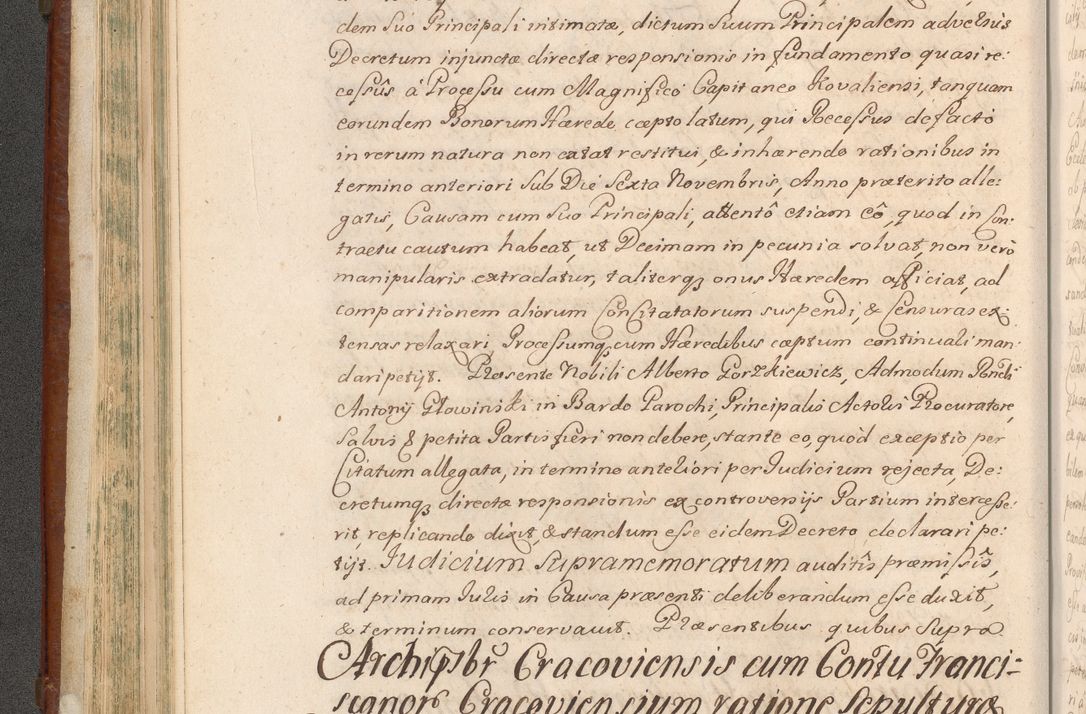 dem suo Principali intimatæ, dictum suum Principalem adversus
Decretum injunctæ directæ responsionis in fundamento quasi re:
cessûs á Processu cum Magnifico Capitaneo Kovaliensi, tanquam
eorundem Bonorum Hærede cæpto latum, qui Recessus de facto
in rerum natura non extat restitui, & inhærendo rationibus in
termino anteriori sub Die sexta Novembris, Anno præterito alle:
gatis, Causam cum suo Principali, attentô etiam eô, quod in Con:
tractu cautum habeat, ut Decimam in pecunia solvat, non verò
manipularis extradatur, taliterq₃ onus Hæredem afficiat, ad
comparitionem aliorum ConCitatatorum suspendi, & Censuras ex:
tensas relaxari, Processumq₃ cum Hæredibus cæptum continuali man:
dari petijt. Præsente Nobili Alberto Gorzkiewicz, Admodum Rndi
Antonij Głowinski in Bardo Parochi, Principalis Actoris Procuratore,
salvis & petita Partis fieri non debere, stante eo, quòd exceptio per
Citatum allegata, in termino anteriori per Judicium rejecta, De:
cretumq₃ directæ responsionis ex controversijs Partium intercesse:
rit, replicando dixit, & standum esse eidem Decreto declarari pe:
tijt. Judicium supramemoratum auditis præmissis,
ad primam Juris in Causa præsenti deliberandum esse duxit,
& terminum conservavit. Præsentibus quibus supra
Archipbr̃ Cracoviensis cum Contu Franci=
scanor̃ Cracoviensium ratione Sepulturæ